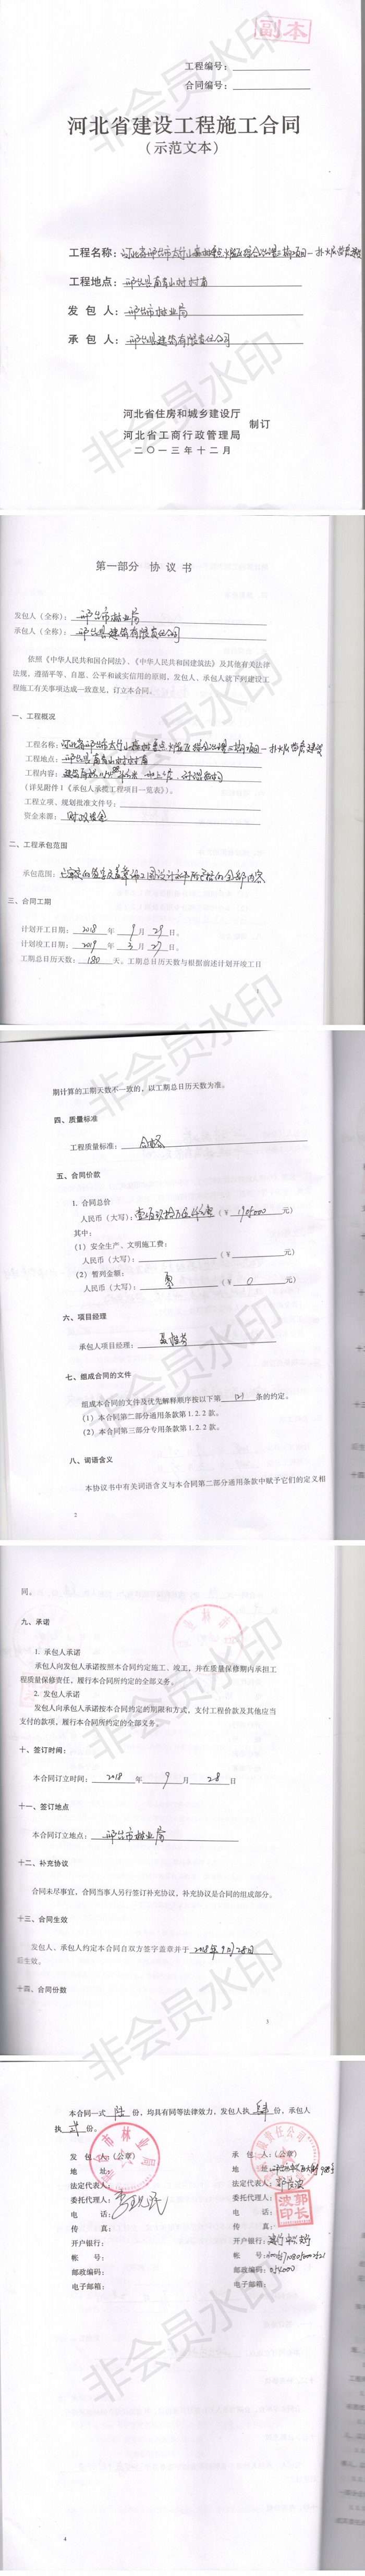 副本
工程编号：
合同编号：
河北省建设工程施工合同
（示范文本）
工程名称：河北省邢台市太行山森林重点火险区综合治理二期项目一扑火队营房建设
工程地点：邢台县南青山村村南
发 包 人：邢台市林业局
承 包 人：邢台县建筑有限责任公司
河北省住房和城乡建设厅
河北省工商行政管理局
制订
二〇一三年十二月
第一部分 协 议 书
发包人（全称）：邢台市林业局
承包人（全称）：邢台县建筑有限责任公司
依照《中华人民共和国合同法》、《中华人民共和国建筑法》及其他有关法律
法规，遵循平等、自愿、公平和诚实信用的原则，发包人、承包人就下列建设工
程施工有关事项达成一致意见，订立本合同。
一、工程概况
工程名称：河北省邢台市太行山森林重点火险区综合治理二期项目一扑火队营房建设
工程地点：邢台县南青山村村南
工程内容：建筑面积 平方米，地上 层，砖混结构
（详见附件 1《承包人承揽工程项目一览表》）。
工程立项、规划批准文件号：
资金来源：财政资金
二、工程承包范围
承包范围： 施工图设计 的全部内容
三、合同工期
计划开工日期：2018 年 9 月 29 日。
计划竣工日期：2019 年 3 月 27 日。
工期总日历天数：180 天。工期总日历天数与根据前述计划开竣工日
1
期计算的工期天数不一致的，以工期总日历天数为准。
四、质量标准
工程质量标准：合格
五、合同价款
1. 合同总价
人民币（大写）：壹佰玖拾万 （￥ 元）
其中：
（1）安全生产、文明施工费：
人民币（大写）： （￥ 元）
（2）暂列金额：
人民币（大写）：零 （￥ 0 元）
六、项目经理
承包人项目经理：
七、组成合同的文件
组成本合同的文件及优先解释顺序按以下第 (2) 条的约定。
（1）本合同第二部分通用条款第 1. 2. 2 款。
（2）本合同第三部分专用条款第 1. 2. 2 款。
八、词语含义
本协议书中有关词语含义与本合同第二部分通用条款中赋予它们的定义相
2
同。
九、承诺
1. 承包人承诺
承包人向发包人承诺按照本合同约定施工、竣工，并在质量保修期内承担工
程质量保修责任，履行本合同所约定的全部义务。
2. 发包人承诺
发包人向承包人承诺按本合同约定的期限和方式，支付工程价款及其他应当
支付的款项，履行本合同所约定的全部义务。
十、签订时间：
本合同订立时间：2018 年 9 月 28 日
十一、签订地点
本合同订立地点：邢台市林业局
十二、补充协议
合同未尽事宜，合同当事人另行签订补充协议，补充协议是合同的组成部分。
十三、合同生效
发包人、承包人约定本合同自双方签字盖章并于 2018年9月28日
后生效。
十四、合同份数
3
本合同一式 陆 份，均具有同等法律效力，发包人执 肆 份，承包人
执 贰 份。
发 包 人：（公章）
地 址：
法定代表人：
委托代理人：
电 话：
传 真：
开户银行：
帐 号：
邮政编码：
电子邮箱：
承 包 人：（公章）
地 址：
法定代表人：
委托代理人：
电 话：
传 真：
开户银行：
帐 号：
邮政编码：054000
电子邮箱：
4
非会员水印
非会员水印
非会员水印
非会员水印
非会员水印
非会员水印
非会员水印
非会员水印